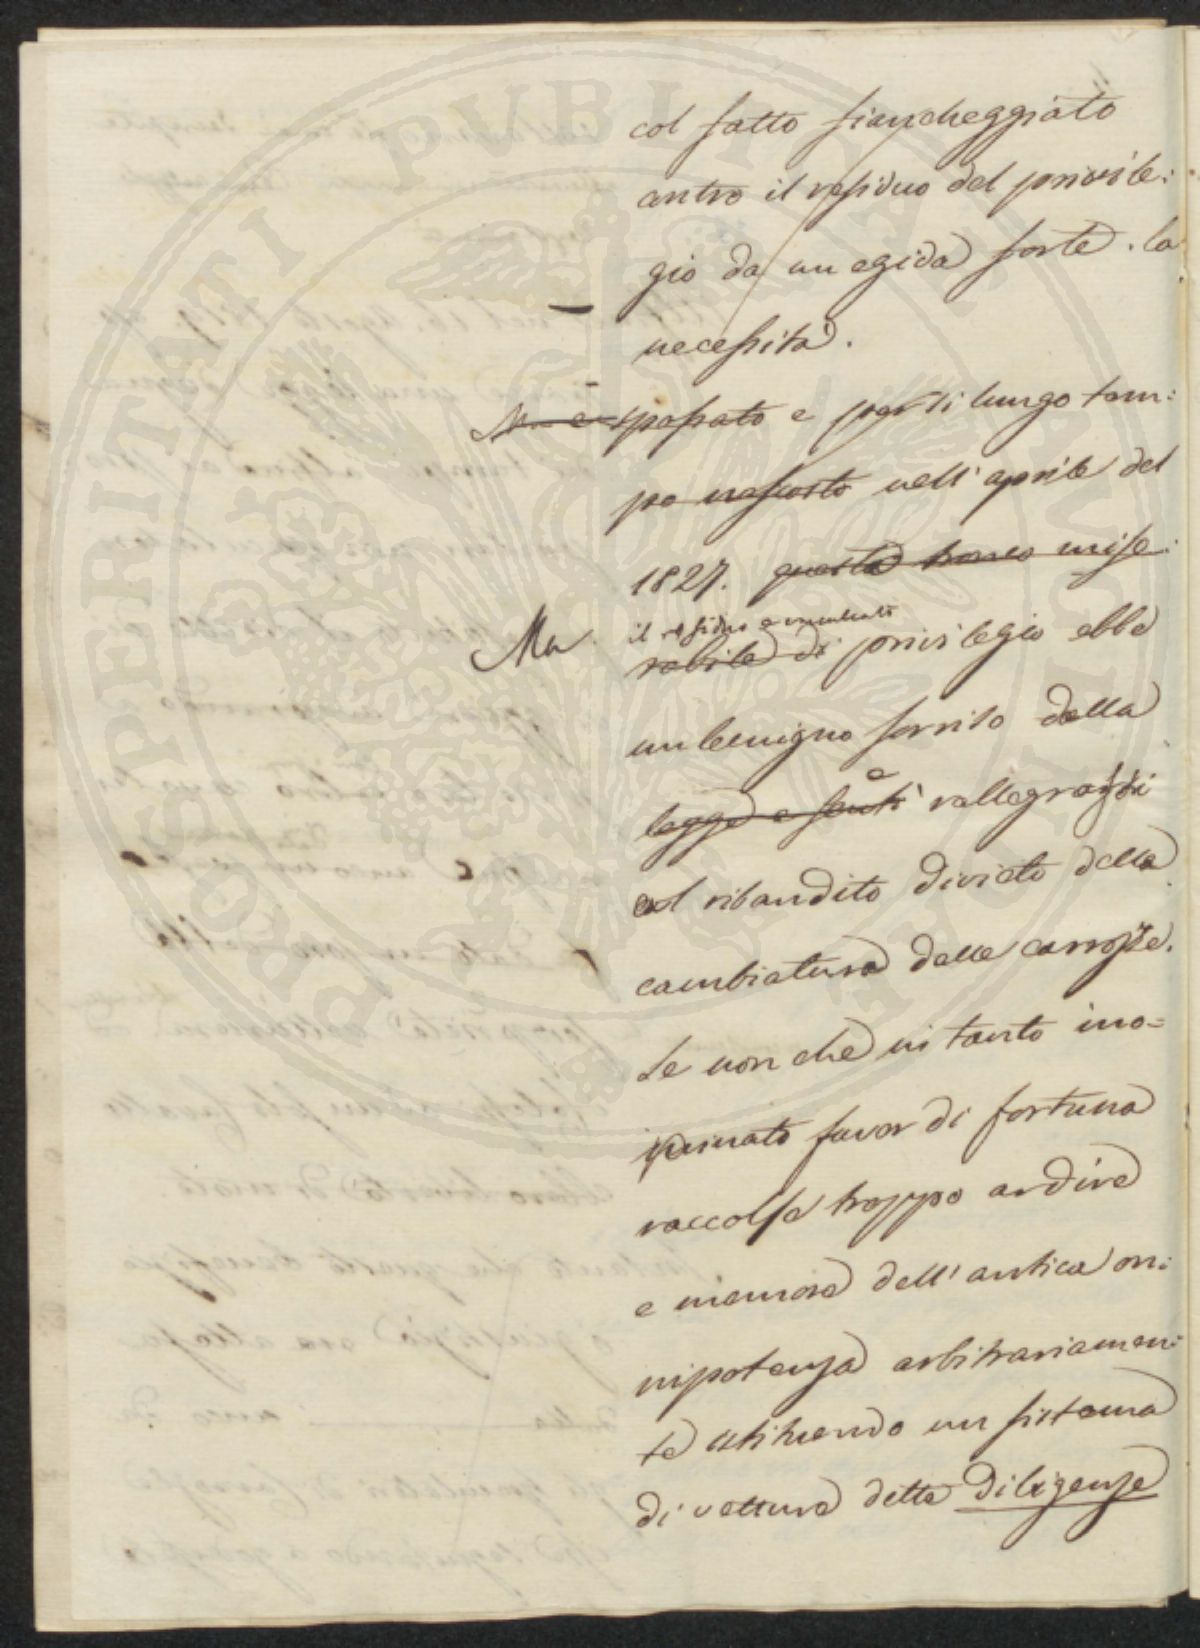 col fatto fiancheggiato
antro il residuo del privile:
gio da un egida forte. la
necessità.
passato e per sì lungo tem:
po nascosto nell'aprile del
1827. questo tronco mise:
il residuo
Ma rabile di privilegio ebbe
un benigno sorriso della
e
legge e sentì rallegrarsi
al ribandito divieto della
cambiatura delle carrozze.
Se non che in tanto ino=
pinato favor di fortuna
raccolse troppo ardire
e memore dell'antica on:
nipotenza arbitrariamen:
te istituendo un sistema
di vetture dette Diligenze
PROSPERITATI PUBLICAE